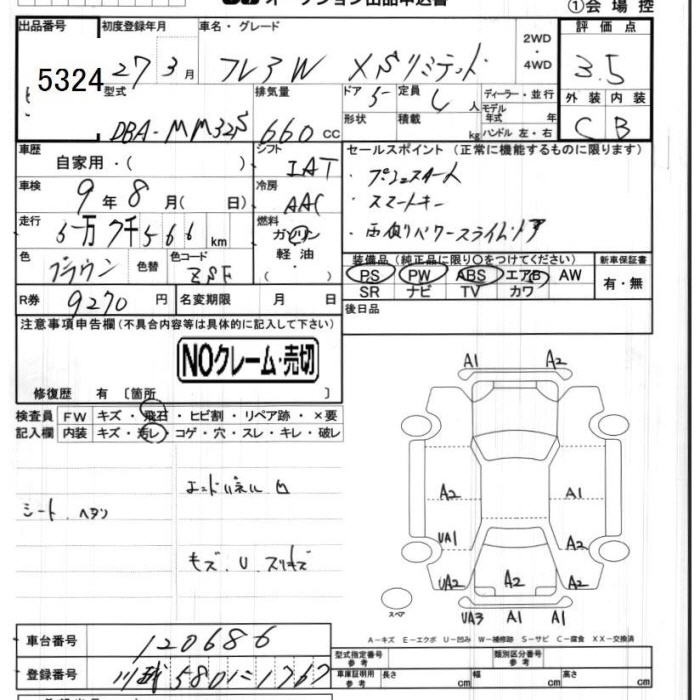 オークション出品申込書 ①会場控
出品番号 初度登録年月 車名・グレード 2WD・4WD 評価点
5324 27年3月 フレアW XSリミテッド 3.5
型式 排気量 ドア 5 定員 人 ディーラー・並行 外装 内装
DBA-MM32S 660cc 形状 積載 kg モデル年式 年 ハンドル 左・右 C B
車歴 シフト セールスポイント (正常に機能するものに限ります)
自家用・( ) IAT ・プッシュスタート
車検 9年8月( 日) 冷房 AAC ・スマートキー
走行 5万7千566km 燃料 ガソリン ・両側パワースライドドア
軽油
色 ブラウン 色替 色コード ZSF ( ) 装備品 (純正品に限り○をつけてください) 新車保証書
PS PW ABS エアB AW 有・無
R券 9270円 名変期限 月 日 SR ナビ TV カワ
後日品
注意事項申告欄(不具合内容等は具体的に記入して下さい)
NOクレーム・売切
修復歴 有 〔箇所 〕
検査員 FW キズ・飛石・ヒビ割・リペア跡・×要
記入欄 内装 キズ・汚レ・コゲ・穴・スレ・キレ・破レ
シート ヘタリ
キズ.U.スリキズ
A1 A2
A2 A1
UA1 A2
UA2 A2 A2
スペア UA3 A1 A1
A-キズ E-エクボ U-凹み W-補修跡 S-サビ C-腐食 XX-交換済
車台番号 120686 型式指定番号 参考 類別区分番号 参考
登録番号 580 1767 車庫証明用 参考 長さ cm 幅 cm 高さ cm